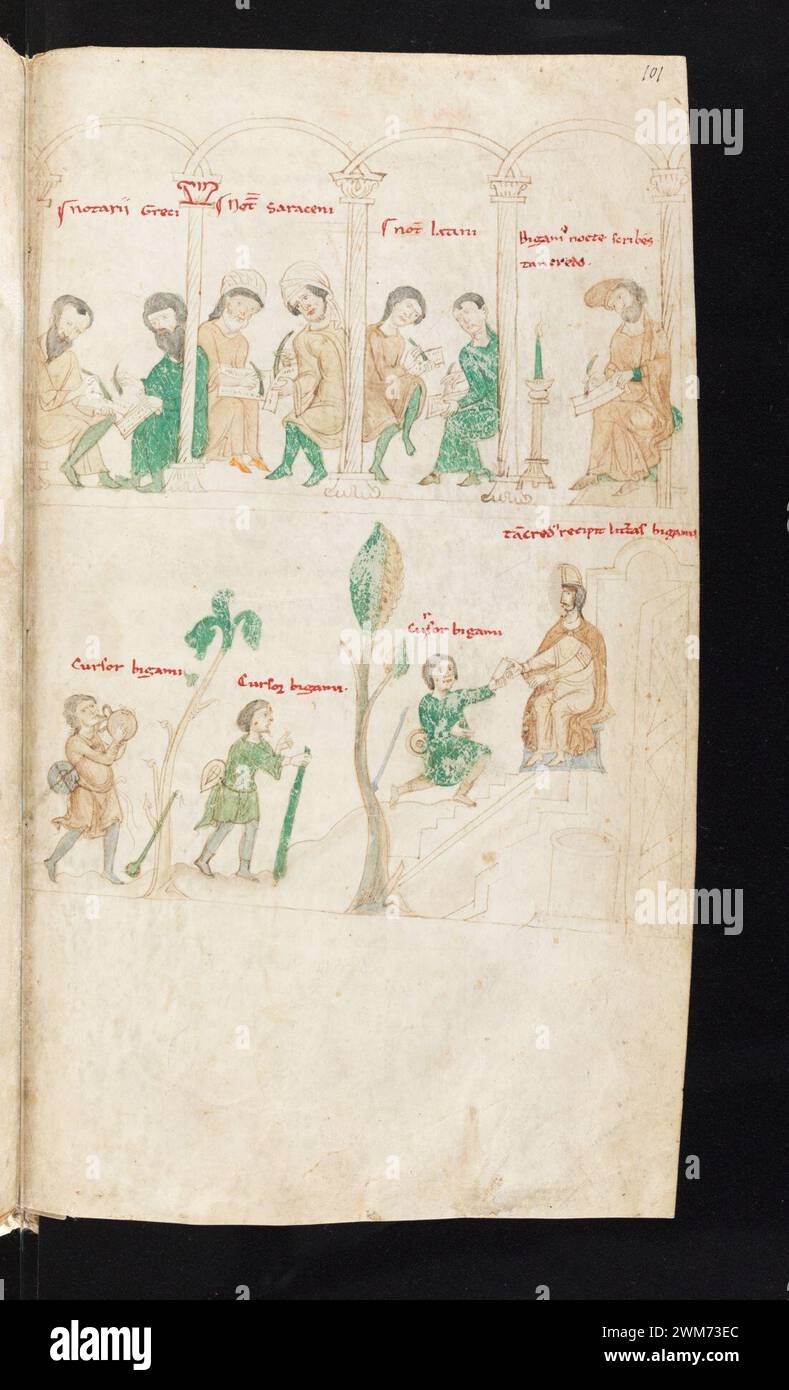 101
notarii Greci
Not̄ Saraceni
Not̄ latini
Bigam᾽ nocte scribēs
tancredo.
curie
curie
tācred᾽ recipit litt̄as bigami
Cursor bigami
Cursor bigami.
Cursor bigami
alamy
Image ID: 2WM73EC
www.alamy.com